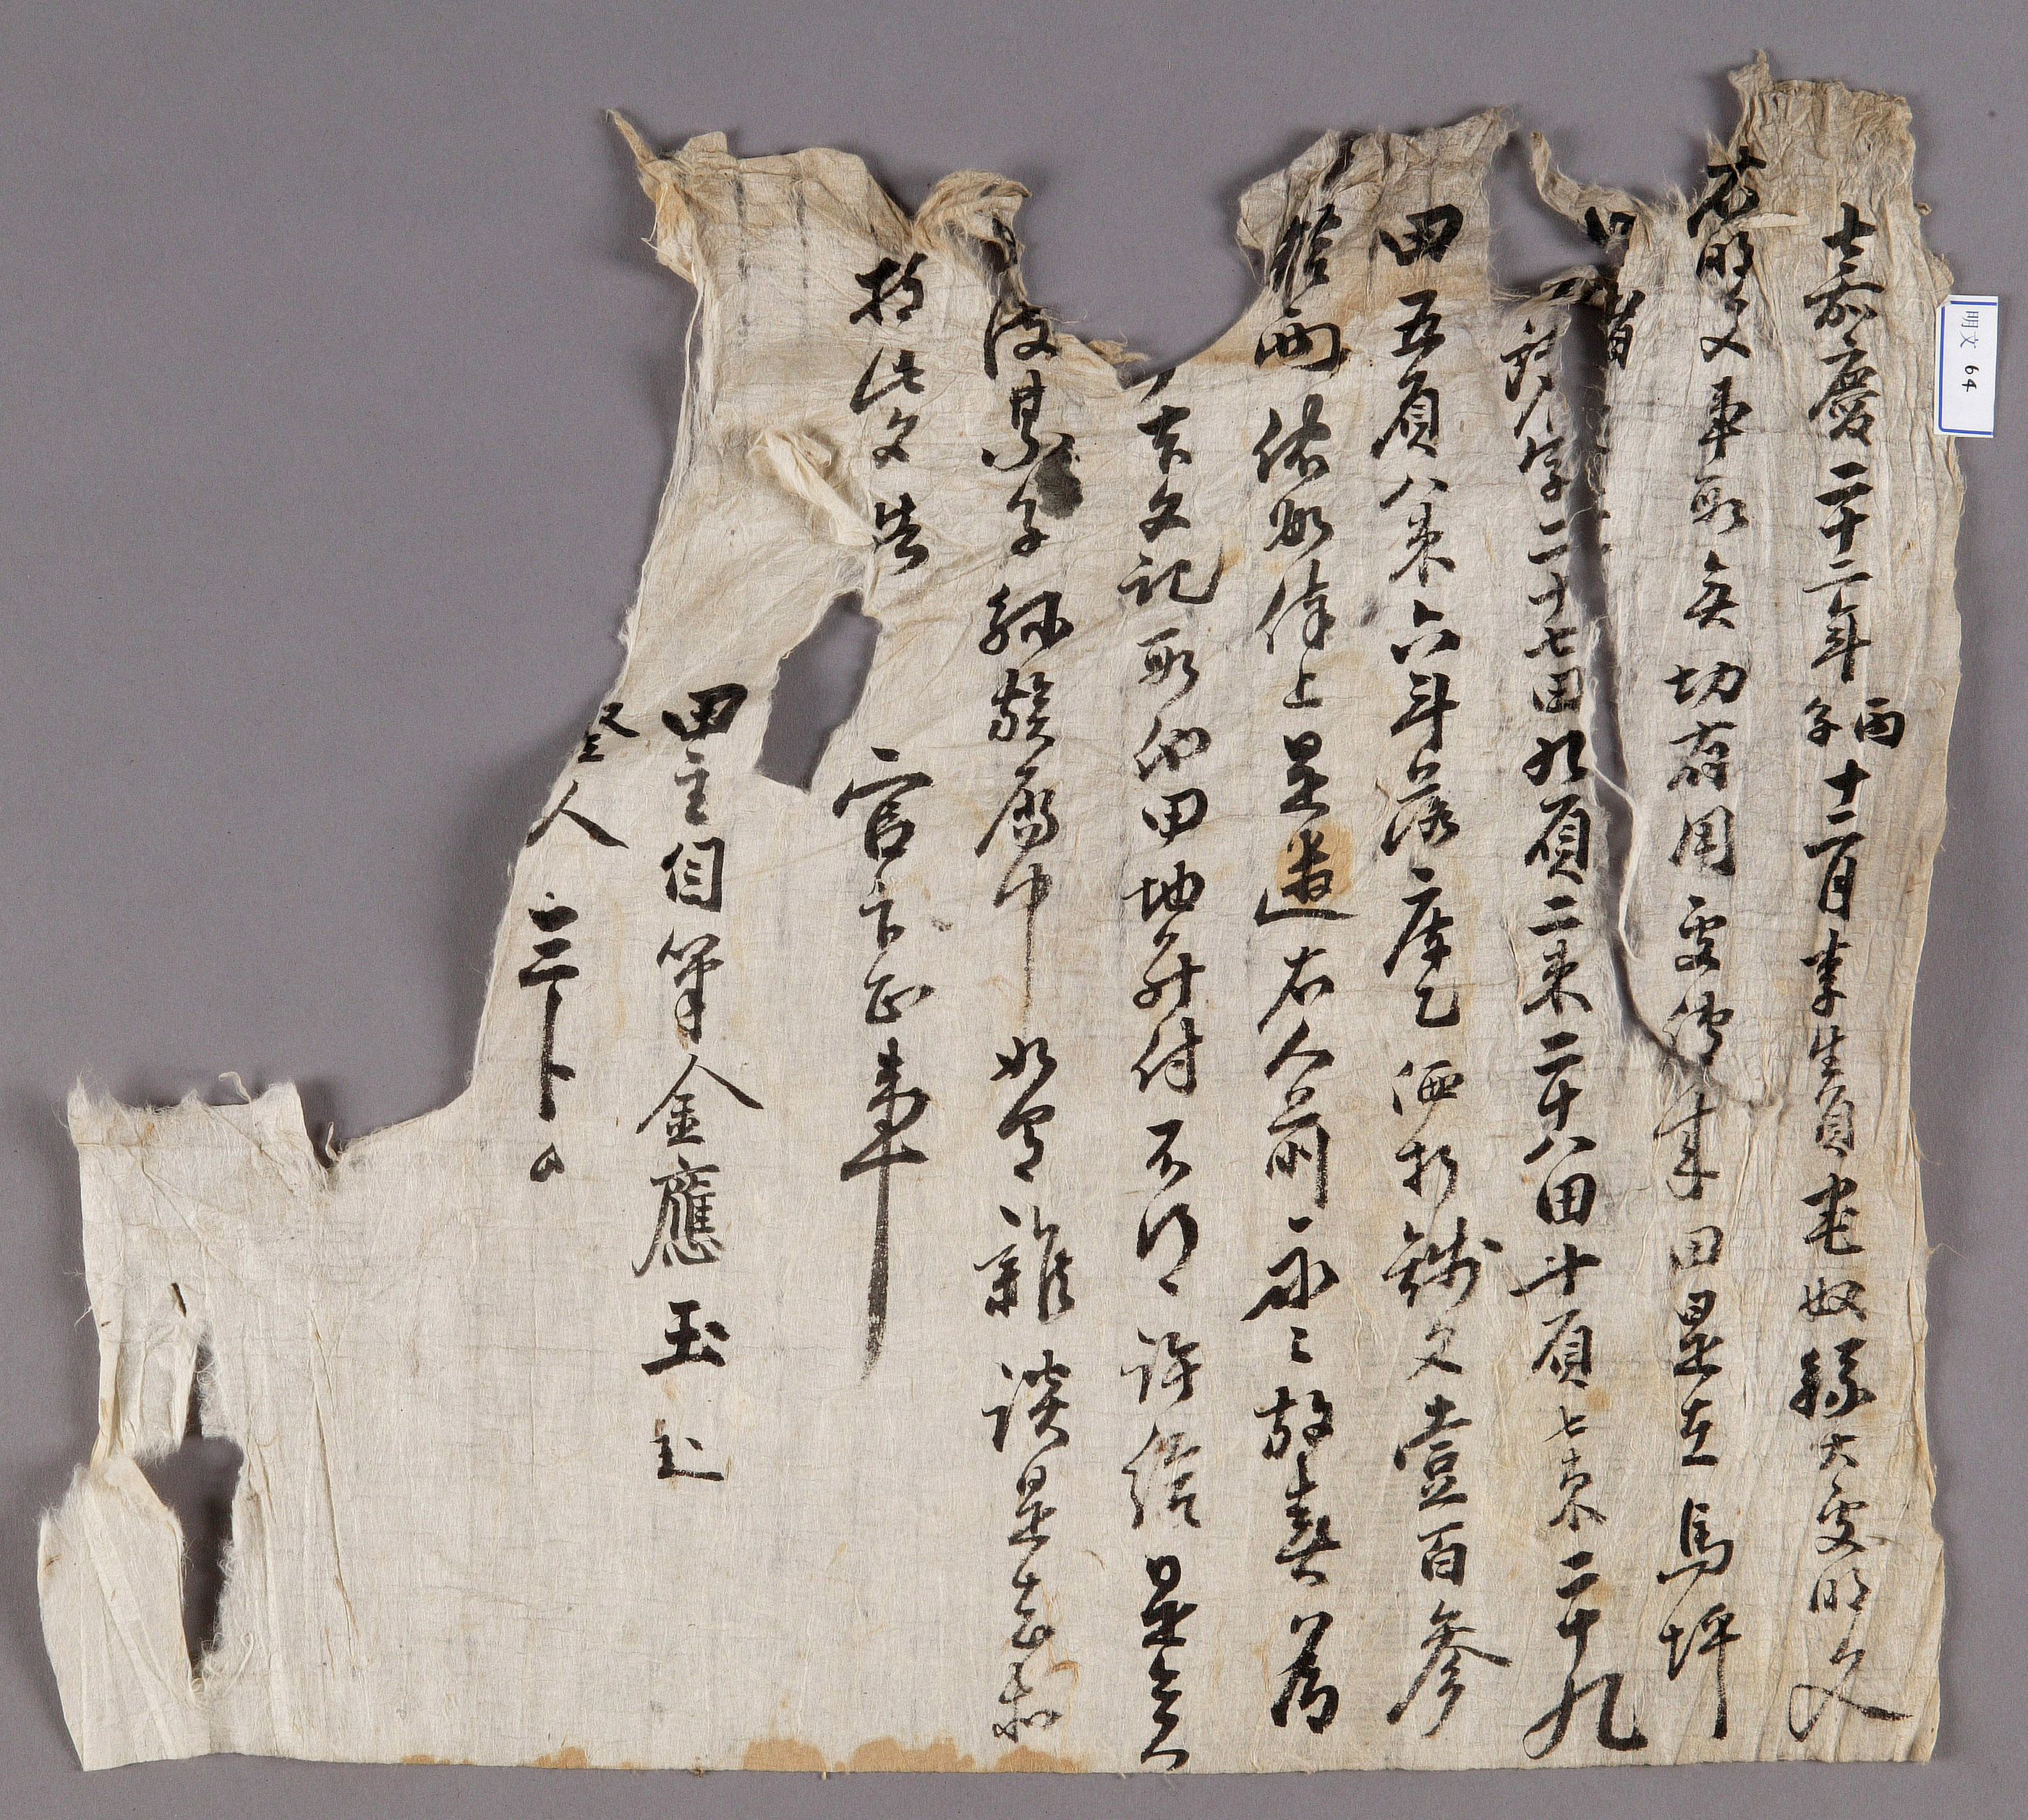 嘉慶二十二年丙子十二月李生員宅奴孫大處明文
右明文事段矣切有用處傳來田是在馬坪
字二十七田九負二束二十八田十負七束二十九
田五負八束六斗落庫乙洒折錢文壹百參
拾兩依數捧上是遣右人前永〻放賣爲
本文記段他田地幷付不得〻許給是去乎
後某子孫族屬中如有雜談是去等
持此文告官卞正事
田主自筆金應玉
證人
明文 64